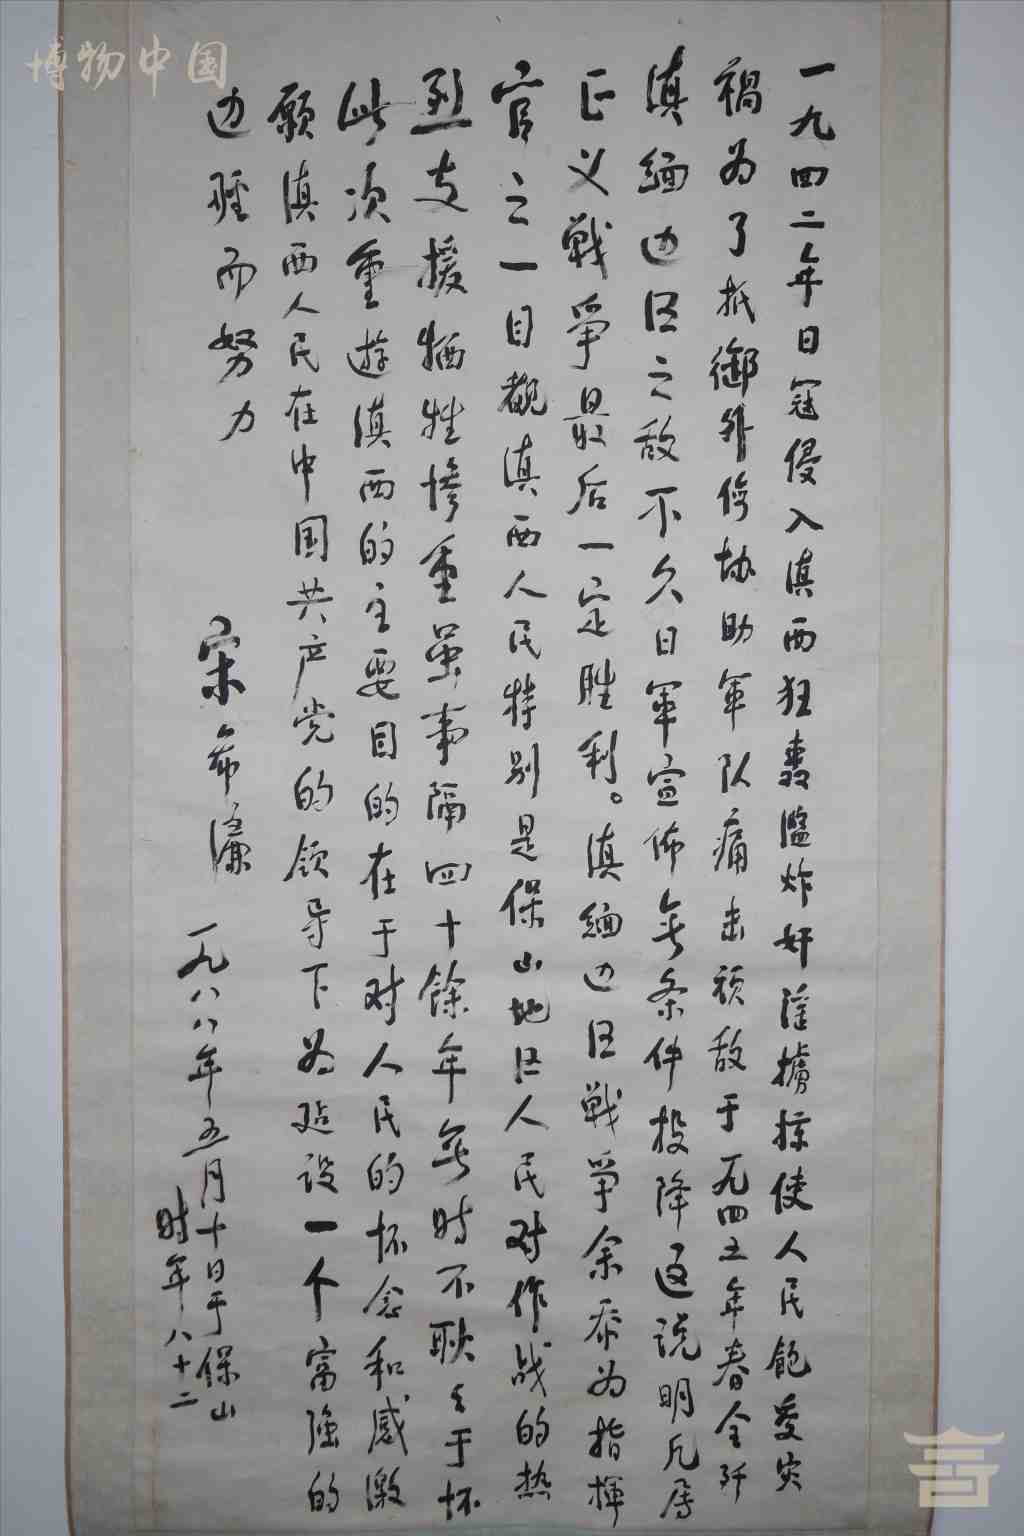 博物中国
一九四二年日寇侵入滇西狂轰滥炸奸淫掳掠使人民饱受灾
祸为了抵御外侮协助军队痛击顽敌于一九四五年春全歼
滇缅边区之敌不久日军宣佈無条件投降这说明凡属
正义戰爭最后一定胜利。滇缅边区戰爭余忝为指揮
官之一目覩滇西人民特别是保山地区人民对作战的热
烈支援牺牲慘重虽事隔四十餘年無时不耿々于怀
此次重遊滇西的主要目的在于对人民的怀念和感激
願滇西人民在中国共产党的领导下为建设一个富强的
边疆而努力
宋希濂
一九八八年五月十日于保山
时年八十二